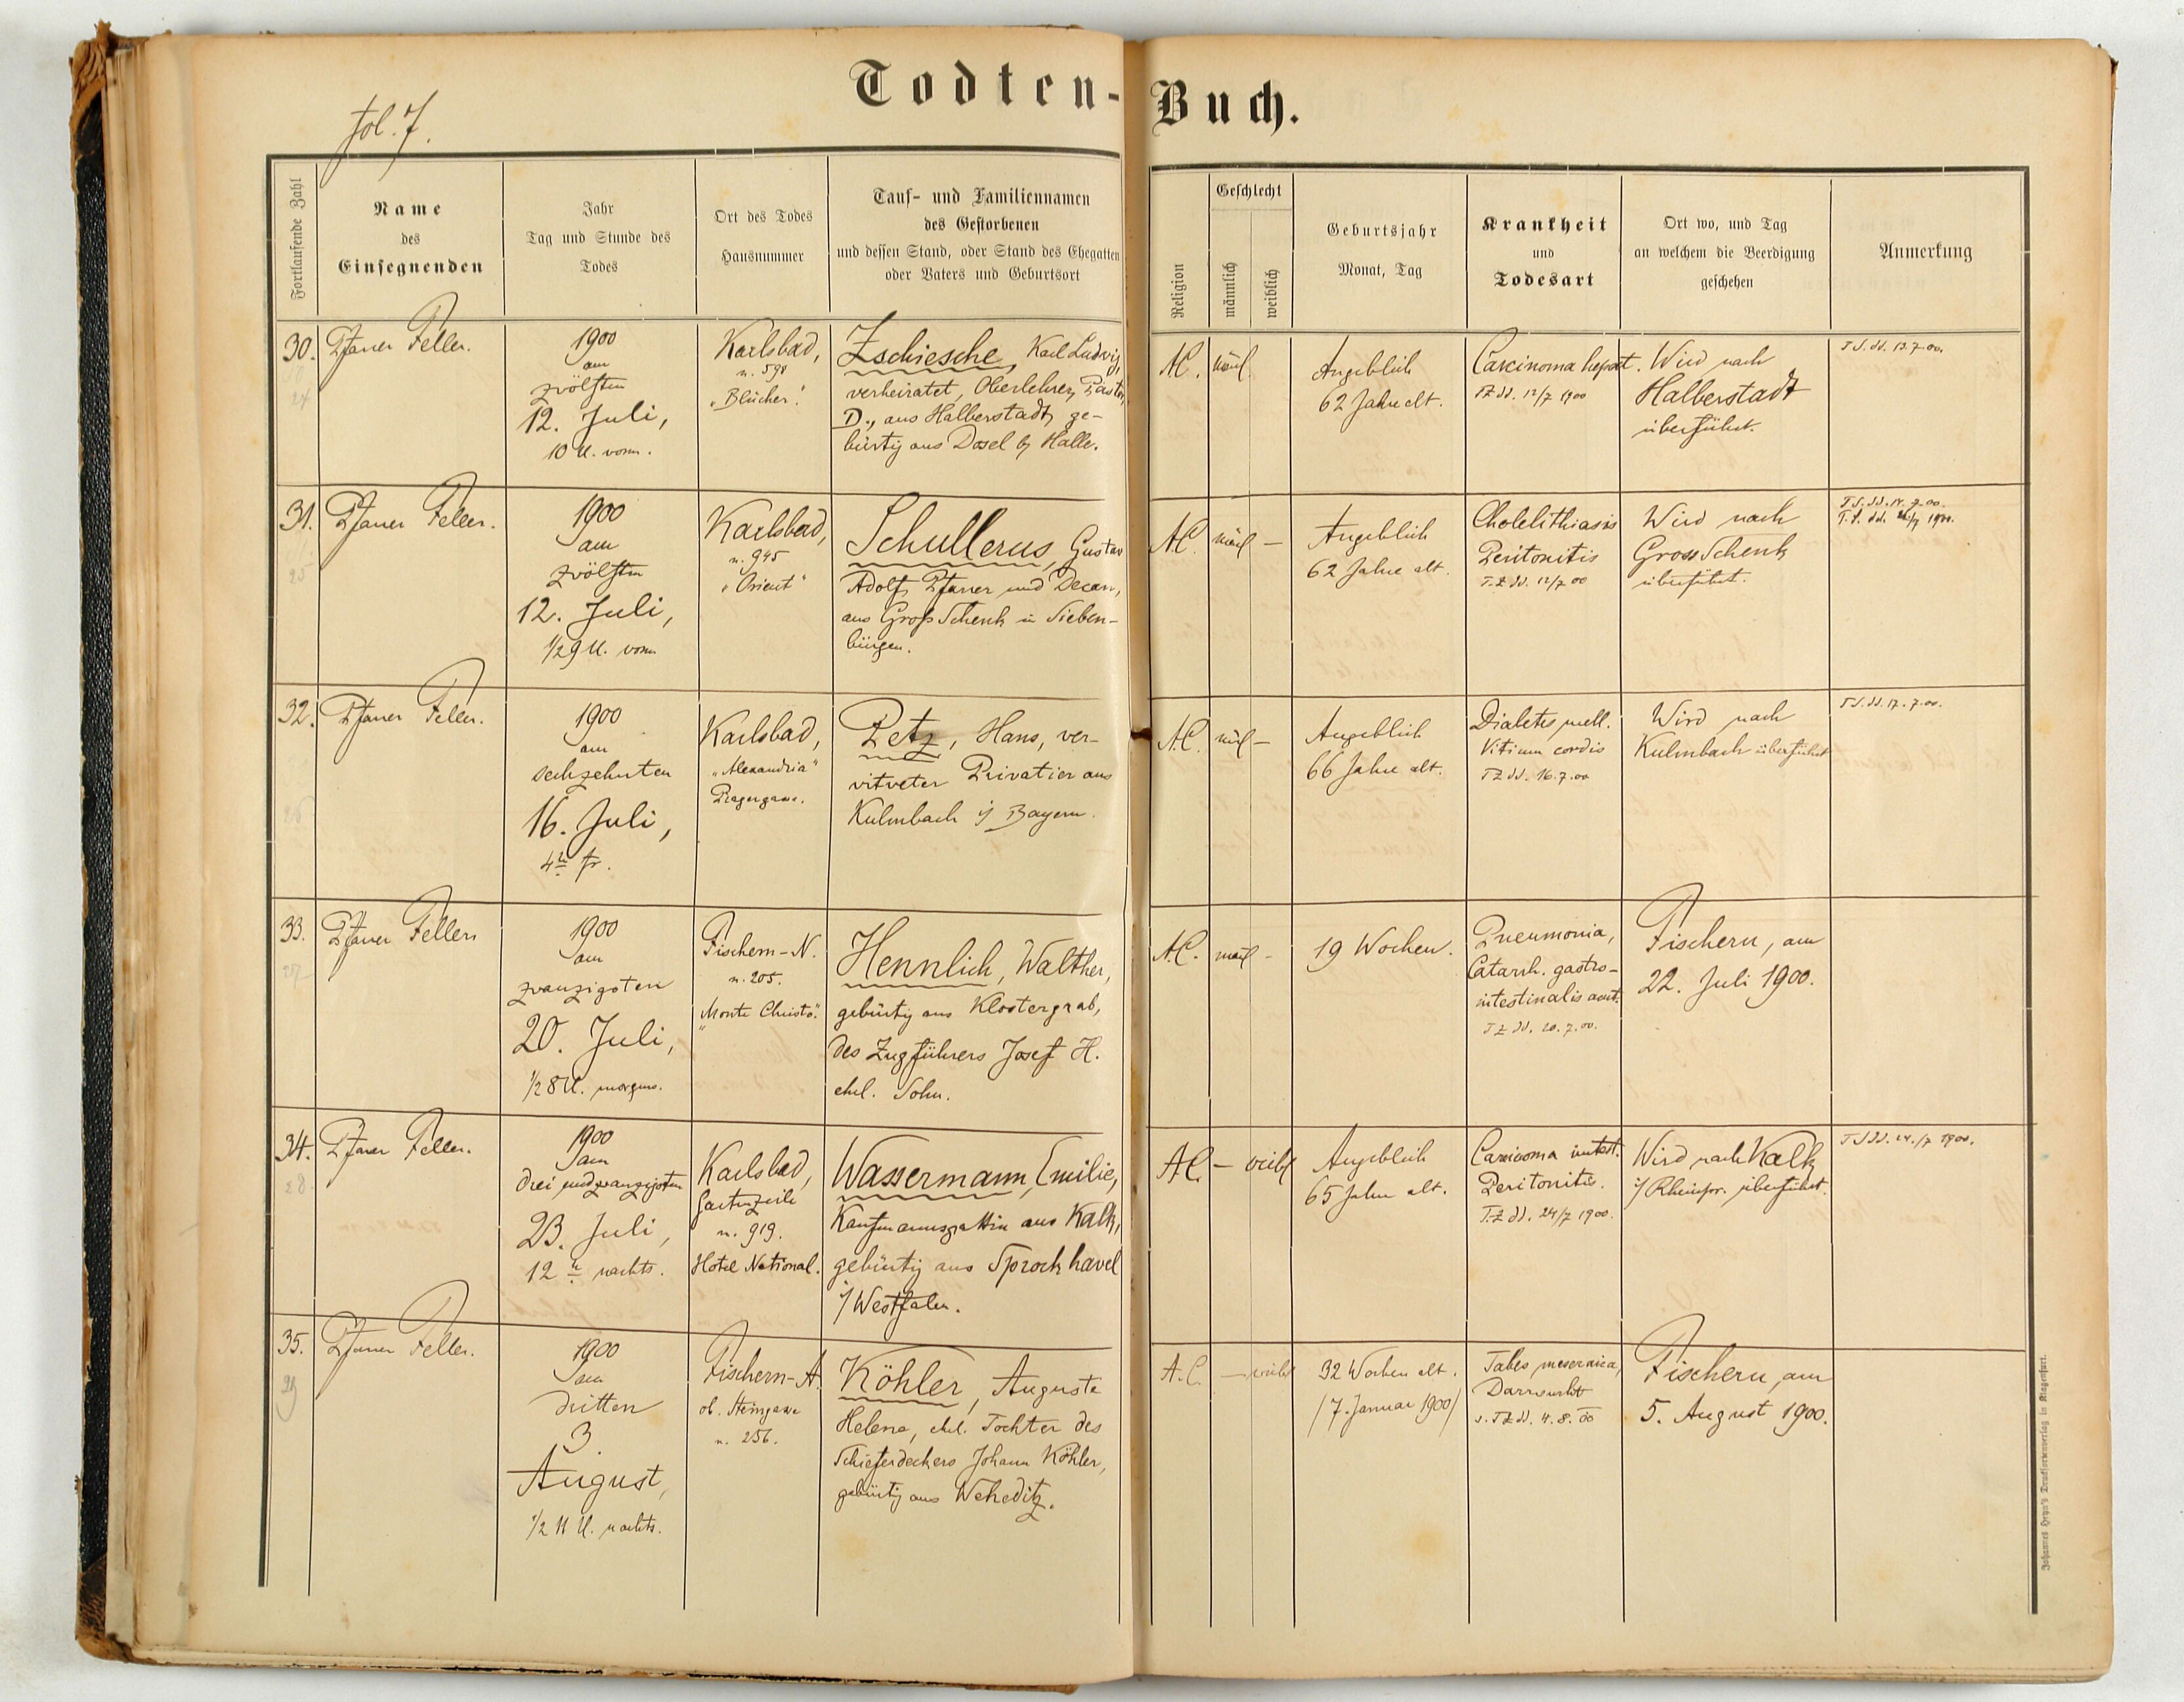 Todten-Buch.
fol. 7.
Fortlaufende Zahl
Name
des
Einsegnenden
Jahr
Tag und Stunde des
Todes
Ort des Todes
Hausnummer
Tauf- und Familiennamen
des Gestorbenen
und dessen Stand, oder Stand des Ehegatten
oder Vaters und Geburtsort
Religion
Geschlecht
männlich
weiblich
Geburtsjahr
Monat, Tag
Krankheit
und
Todesart
Ort wo, und Tag
an welchem die Beerdigung
geschehen
Anmerkung
30.
24
Pfarrer Feller.
1900
am
zwölften
12. Juli,
10 U. vorm.
Karlsbad,
n. 598
"Blücher".
Zschiesche, Karl Ludwig,
verheiratet, Oberlehrer, Pastor,
D., aus Halberstadt, ge-
bürtig aus Dosel b/ Halle.
AC.
mänl.
Angeblich
62 Jahre alt.
Carcinoma hepat.
TZ dd. 12/7 1900
Wird nach
Halberstadt
überführt.
T.S. dd. 13.7.00.
31.
25
Pfarrer Feller.
1900
am
zwölften
12. Juli,
1/2 9 U. vorm
Karlsbad,
n. 945
"Orient"
Schullerus, Gustav
Adolf, Pfarrer und Decan,
aus Groß Schenk in Sieben-
bürgen.
AC.
mänl —
Angeblich
62 Jahre alt.
Cholelithiasis
Peritonitis
T.Z dd. 12/7 00
Wird nach
Gross Schenk
überführt.
T.S. dd. 14.7.00.
32.
26
Pfarrer Feller.
1900
am
sechzehnten
16. Juli,
4 h fr.
Karlsbad,
"Alexandria"
Pragergasse.
Petz, Hans, ver-
witweter Privatier aus
Kulmbach i/ Bayern.
A.C.
mäl —
Angeblich
66 Jahre alt.
Diabetes mell.
Vitium cordis
TZ dd. 16.7.00
Wird nach
Kulmbach überführt
T.S. dd. 17.7.00.
33.
27
Pfarrer Feller.
1900
am
zwanzigsten
20. Juli,
1/2 8 U. morgens.
Fischern-N.
n. 205.
"Monte Christo".
Hennlich, Walther,
gebürtig aus Klostergrab,
des Zugführers Josef H.
ehel. Sohn.
A.C.
mänl -
19 Wochen.
Pneumonia,
Catarrh. gastro-
intestinalis acut.
TZ dd. 20.7.00.
Fischern, am
22. Juli 1900.
34.
28
Pfarrer Feller.
1900
am
drei und zwanzigsten
23. Juli,
12 h nachts.
Karlsbad,
Gartenzeile
n. 919.
Hotel National.
Wassermann, Emilie,
Kaufmannsgattin aus Kalk,
gebürtig aus Sprockhavel
i/ Westfalen.
AC.
— weibl
Angeblich
65 Jahre alt.
Carcinoma intest.
Peritonitis.
T.Z dd. 24/7 1900.
Wird nach Kalk
i/ Rheinpr. überführt.
T.S dd. 24./7 1900.
35.
29
Pfarrer Feller.
1900
am
dritten
3.
August,
1/2 11 U. nachts.
Fischern-A.
ob. Steingasse
n. 256.
Köhler, Auguste
Helene, ehel. Tochter des
Schieferdeckers Johann Köhler,
gebürtig aus Weheditz.
A.C.
— weibl
32 Wochen alt.
/7. Januar 1900/
Tabes meseraica,
Darrsucht
s. TZ dd. 4.8.00
Fischern, am
5. August 1900.
Johannes Heyn's Drucksortenverlag in Klagenfurt.